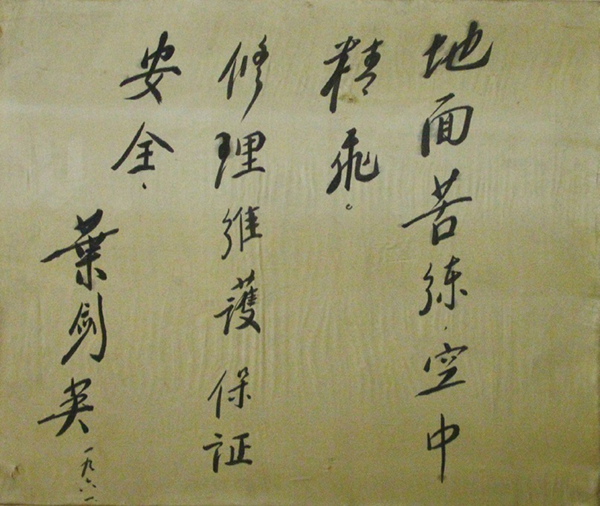 地面苦练.空中
精飛。
修理維護保证
安全.
葉剑英
一九六一